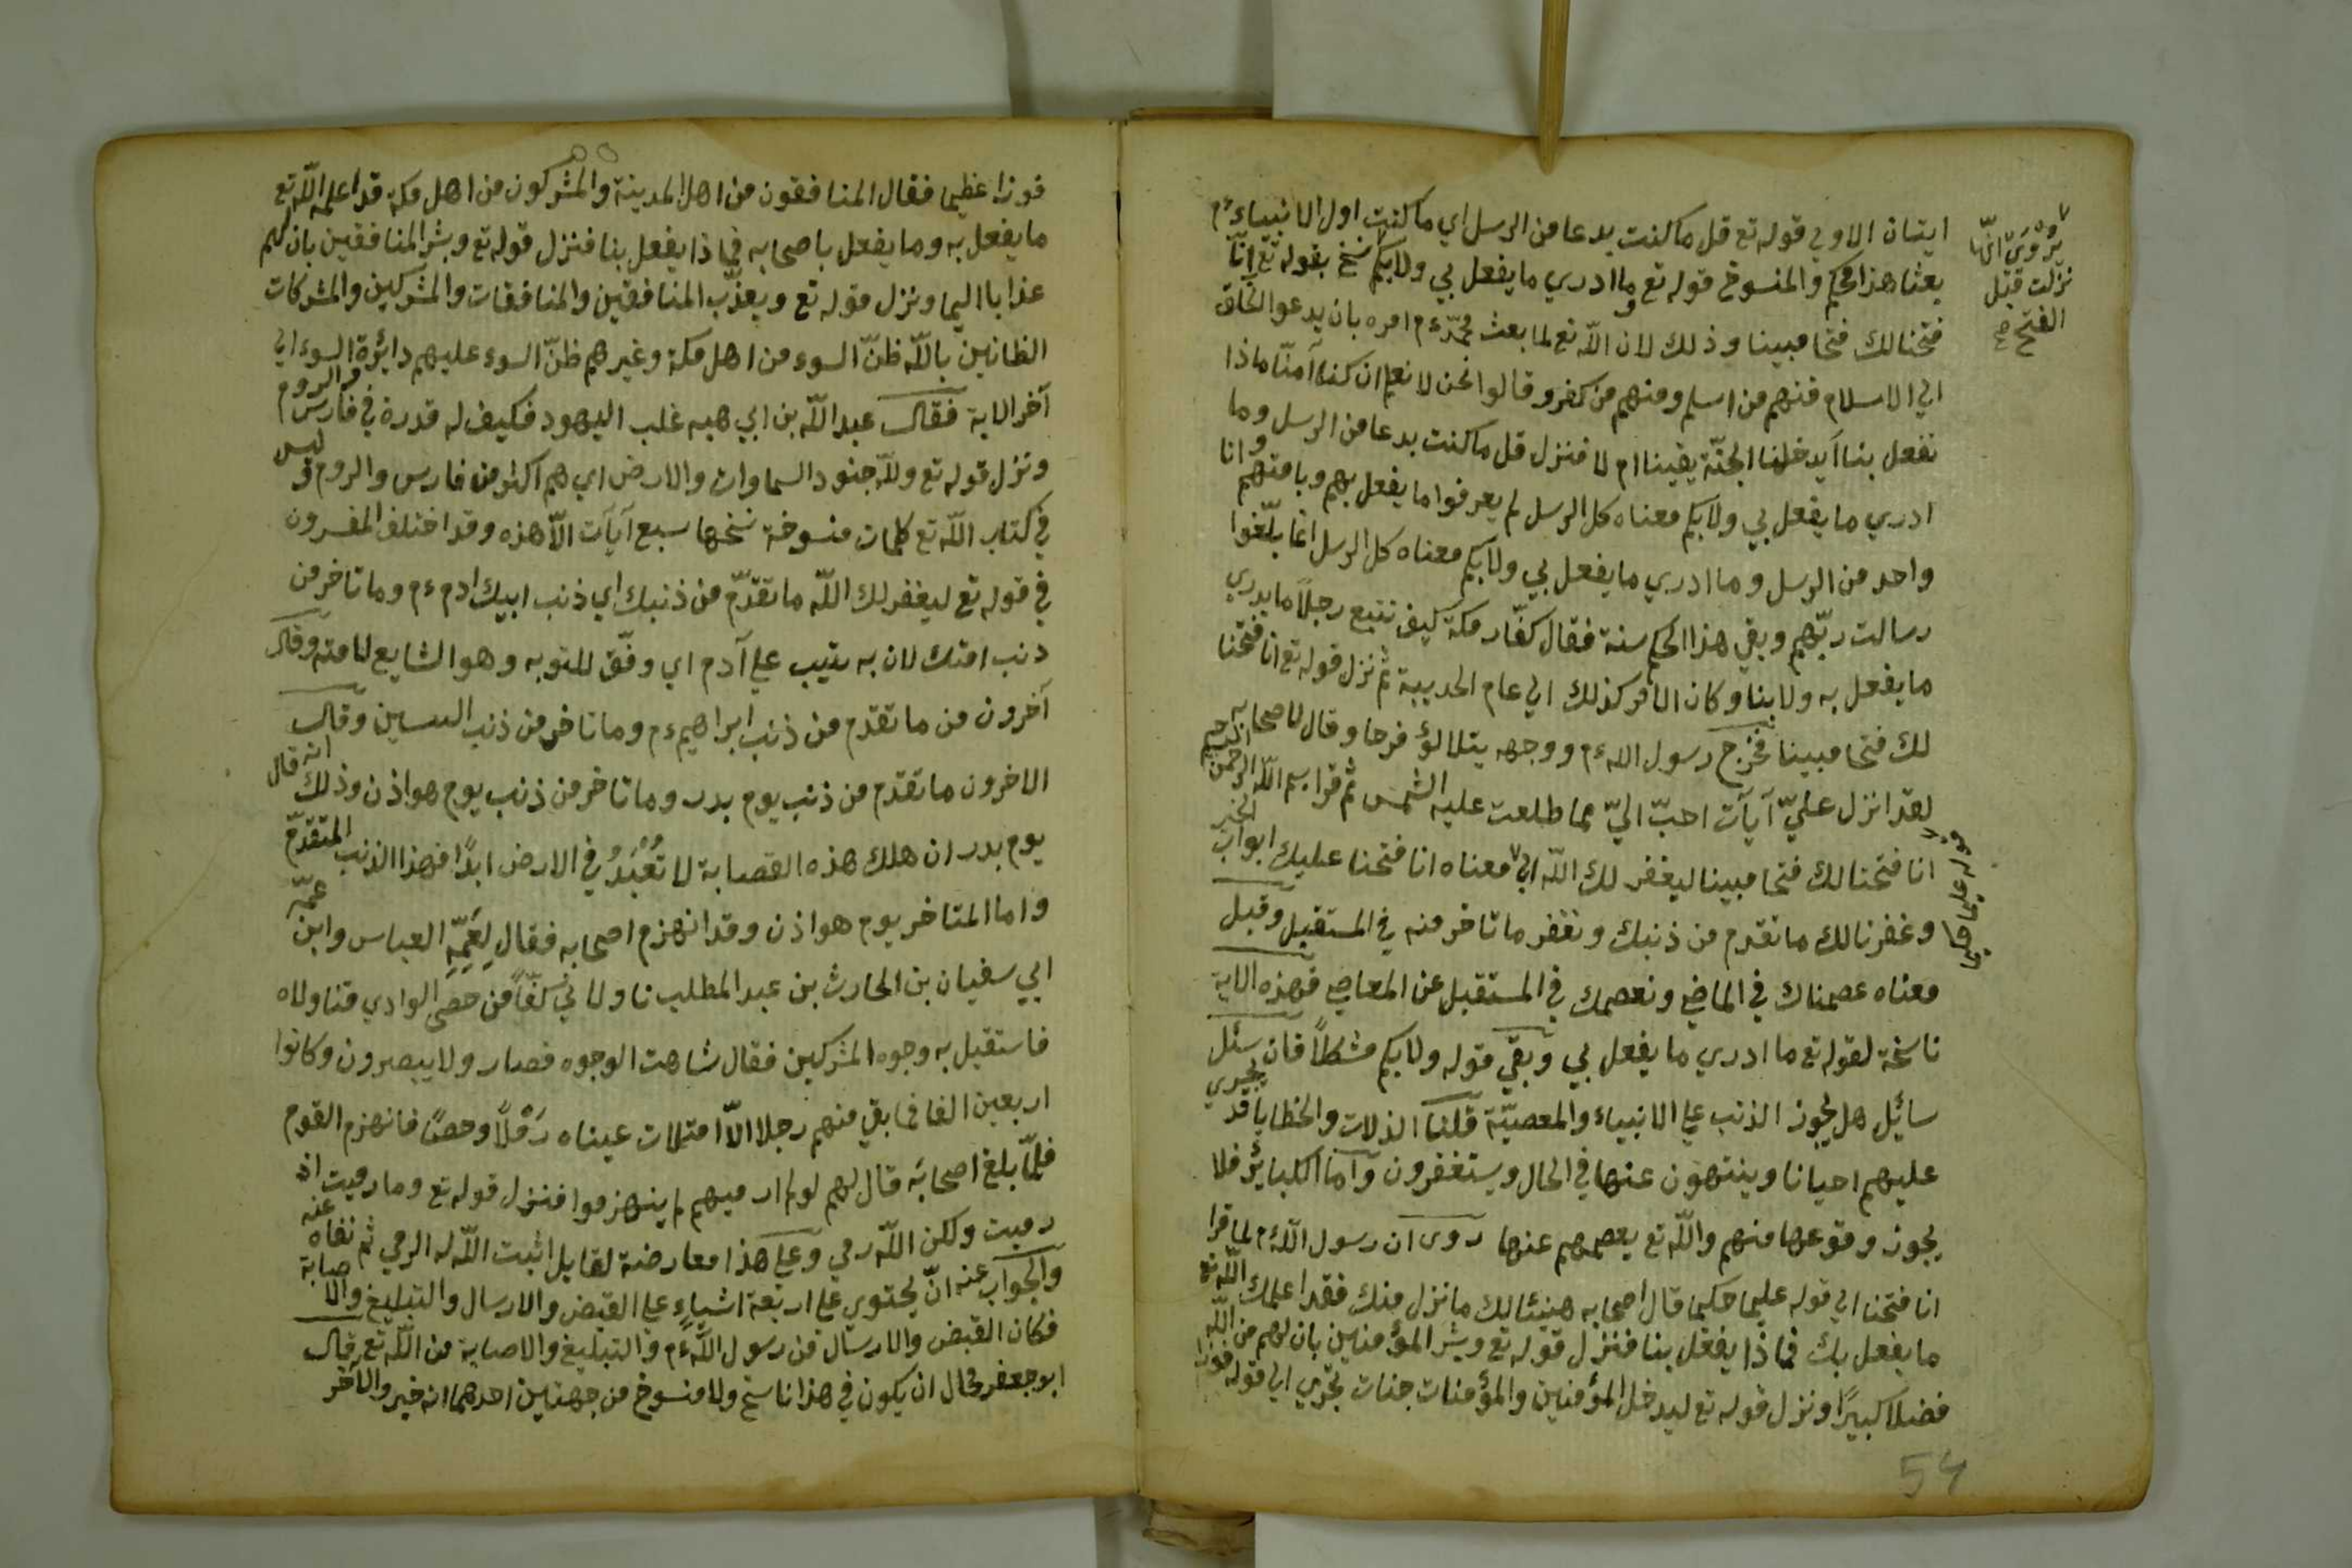 ايتان الاولى قوله تع قل ما كنت بدعا من الرسل اي ما كنت اول الانبياء ءم
يروى انها
نزلت قبل
الفتح صح
بعثا هذا محكم والمنسوخ قوله تع وما ادري ما يفعل بي ولا بكم نسخ بقوله تع انّا
فتحنا لك فتحا مبينا وذلك لان الله تع لما بعث محمّد ءم امره بان يدعو الخلق
الي الاسلام فمنهم من اسلم ومنهم من كفر وقالوا نحن لا نعلم ان كنا آمنّا ماذا
نفعل بنا أيدخلنا الجنّة يقينا ام لا فنزل قل ما كنت بدعا من الرسل وما
ادري ما يفعل بي ولا بكم معناه كل الرسل لم يعرفوا ما يفعل بهم وبامتهم وانا
واحد من الرسل وما ادري ما يفعل بي ولا بكم معناه كل الرسل انما بلّغوا
رسالت ربّهم وبقي هذا الحكم سنة فقال كفّار مكة كيف نتبع رجلاً ما يدري
ما يفعل به ولا بنا وكان الامر كذلك الي عام الحديبية ثم نزل قوله تع انا فتحنا
لك فتحا مبينا فخرج رسول الله ءم ووجهه يتلالؤ فرحا وقال لاصحابه
لقد انزل عليّ آيات احبّ اليّ مما طلعت عليه الشمس ثم قرا بسم الله الرحمن الرحيم
انا فتحنا لك فتحا مبينا ليغفر لك الله الي معناه انا فتحنا عليك ابواب الخير
قوله عليما حكيما
وغفرنا لك ما تقدم من ذنبك ونغفر ما تاخر منه في المستقبل وقيل
معناه عصمناك في الماضي ونعصمك في المستقبل عن المعاصي فهذه الاية
ناسخة لقوله تع ما ادري ما يفعل بي وبقي قوله ولا بكم مشكلاً فان سئل
سائل هل يجوز الذنب علي الانبياء والمعصيّة قلنا الذلات والخطايا قد يجري
عليهم احيانا وينتهون عنها في الحال ويستغفرون وامّا الكبائر فلا
يجوز وقوعها منهم والله تع يعصمهم عنها روى ان رسول الله ءم لما قرا
انا فتحنا الي قوله عليما حكيما قال اصحابه هنيئا لك ما نزل منك فقد اعلمك الله تع
ما يفعل بك فماذا يفعل بنا فنزل قوله تع وبشر المؤمنين بان لهم من الله
فضلا كبيرًا ونزل قوله تع ليدخل المؤمنين والمؤمنات جنات تجري الي قوله فوزا
54
فوزا عظيما فقال المنافقون من اهل المدينة والمشركون من اهل مكة قد اعلمه الله تع
ما يفعل به وما يفعل باصحابه فماذا يفعل بنا فنزل قوله تع وبشر المنافقين بان لهم
عذابا اليما ونزل قوله تع ويعذّب المنافقين والمنافقات والمشركين والمشركات
الظانين بالله ظنّ السوء من اهل مكة وغيرهم ظنّ السوء عليهم دائرة السوء الي
آخر الاية فقال عبد الله بن ابي هبه غلب اليهود فكيف له قدرة في فارس والروم
ونزل قوله تع ولله جنود السماوات والارض اي هم اكثر من فارس والروم وليس
في كتاب الله تع كلمات منسوخة نسخها سبع آيات الا هذه وقد اختلف المفسرون
في قوله تع ليغفر لك الله ما تقدّم من ذنبك اي ذنب ابيك ادم ءم وما تاخر من
ذنب امتك لان به يتيب علي آدم اي وفّق للتوبه وهو الشايع لامته وقال
آخرون من ما تقدّم من ذنب ابراهيم ءم وما تاخر من ذنب وقال
الاخرون ما تقدم من ذنب يوم بدر وما تاخر من ذنب يوم هوازن وذلك انه قال
يوم بدر ان هلك هذه العصابة لا تُعْبَدُ في الارض ابدًا فهذا الذنب المتقدّم
واما المتاخر يوم هوازن وقد انهزم اصحابه فقال لِعَمِّهِ العباس وابن عمّه
ابي سفيان بن الحارث بن عبد المطلب ناولاني كفّاً من حصى الوادي فناولاه
فاستقبل به وجوه المشركين فقال شاهت الوجوه فصار ولا يبصرون وكانوا
اربعين الفا فما بقي منهم رجلا الاّ امتلات عيناه رَمْلاً وحصًا فانهزم القوم
فلمّا بلغ اصحابَه قال لهم لو لم ارميهم لم ينهزموا فنزل قوله تع وما رميت اذ
رميت ولكن الله رمي وعلي هذا معارضة لقايل اثبت الله له الرمي ثم نفاه عنه
والجواب عنه انّ يحتوي علي اربعة اشياءٍ علي القبض والارسال والتبليغ والاصابة
فكان القبض والارسال من رسول الله ءم والتبليغ والاصابة من الله تع قال
ابو جعفر محال ان يكون في هذا ناسخ ولا منسوخ من جهتين احدهما انه خبر والآخر